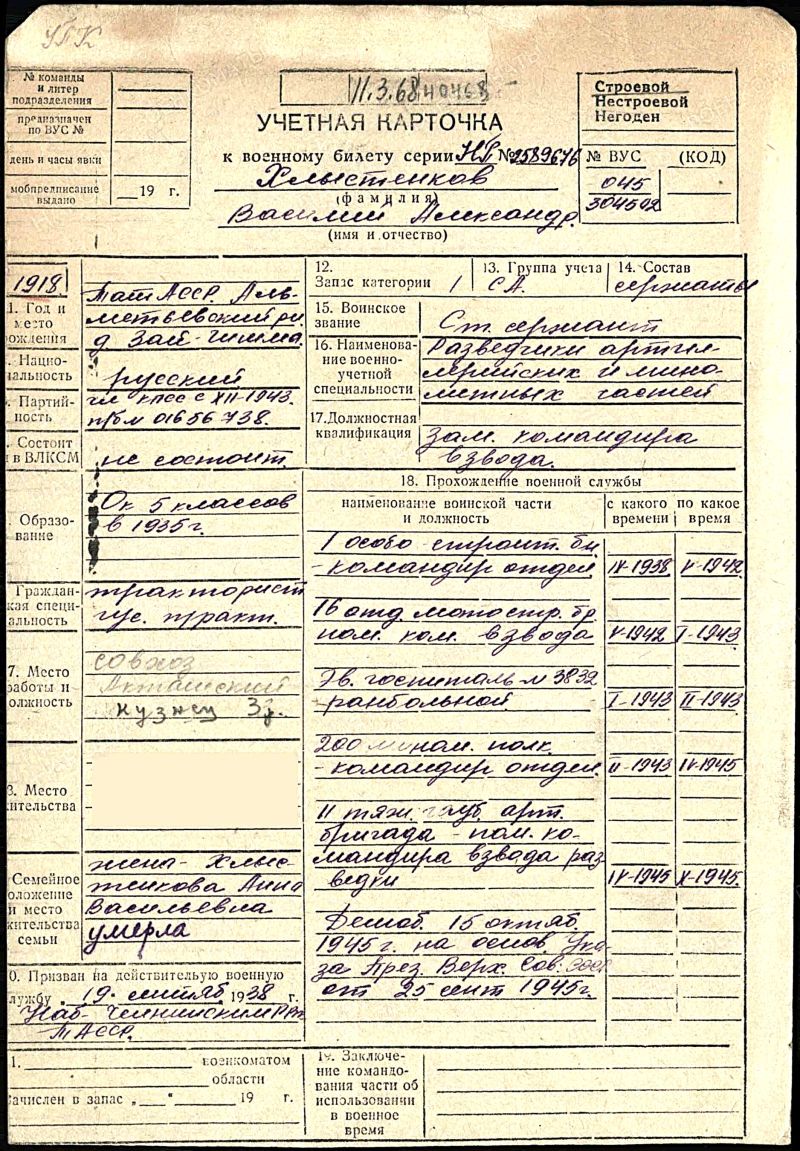 УПК
№ команды
и литер
подразделения
предназначен
по ВУС №
день и часы явки
мобпредписание
выдано
19 г.
11.3.68 40468
УЧЕТНАЯ КАРТОЧКА
к военному билету серии НП № 2589676
Хлыстенков
(фамилия)
Василий Александр.
(имя и отчество)
Строевой
Нестроевой
Негоден
№ ВУС (КОД)
045
304502
1918
1. Год и
место
рождения
ТатАССР. Аль-
метьевский р-н
д Зай-Чишма.
Нацио-
нальность
русский
Партий-
ность
чл КПСС с XII-1943.
п/б № 01656738.
Состоит
и в ВЛКСМ
не состоит.
Образо-
вание
Ок 5 классов
в 1935 г.
Граждан-
кая специ-
альность
тракторист
гус. тракт.
7. Место
работы и
должность
совхоз
Акташский
кузнец 3р.
8. Место
жительства
Семейное
положение
и место
жительства
семьи
жена - Хлыс-
тенкова Анна
Васильевна
умерла
0. Призван на действительую военную
службу 19 сентяб 1938 г.
Наб-Челнинским РВК
ТАССР.
1. военкоматом
области
Зачислен в запас „ " 19 г.
12.
Запас категории 1
13. Группа учета
СА.
14. Состав
сержанты
15. Воинское
звание
Ст. сержант
16. Наименова-
ние военно-
учетной
специальности
Разведчики артил-
лерийских и мино-
метных частей
17. Должностная
квалификация
зам. командира
взвода.
18. Прохождение военной службы
наименование воинской части
и должность
с какого
времени
по какое
время
1 особо-строит. бн
- командир отдел IV-1938 V-1942
16 отд. мотостр. бр
пом. ком. взвода V-1942 I-1943
Эв. госпиталь № 3832
ранбольной I-1943 II-1943
200 мином. полк
- командир отдел. II-1943 IV-1945
11 тяж. гауб. арт.
бригада - пом. ко-
мандира взвода раз
ведки IV-1945 X-1945.
Демоб. 15 октяб.
1945 г. на основ Ука-
за През. Верх. Сов. СССР
от 25 сент 1945 г.
19. Заключе-
ние командо-
вания части об
использовании
в военное
время